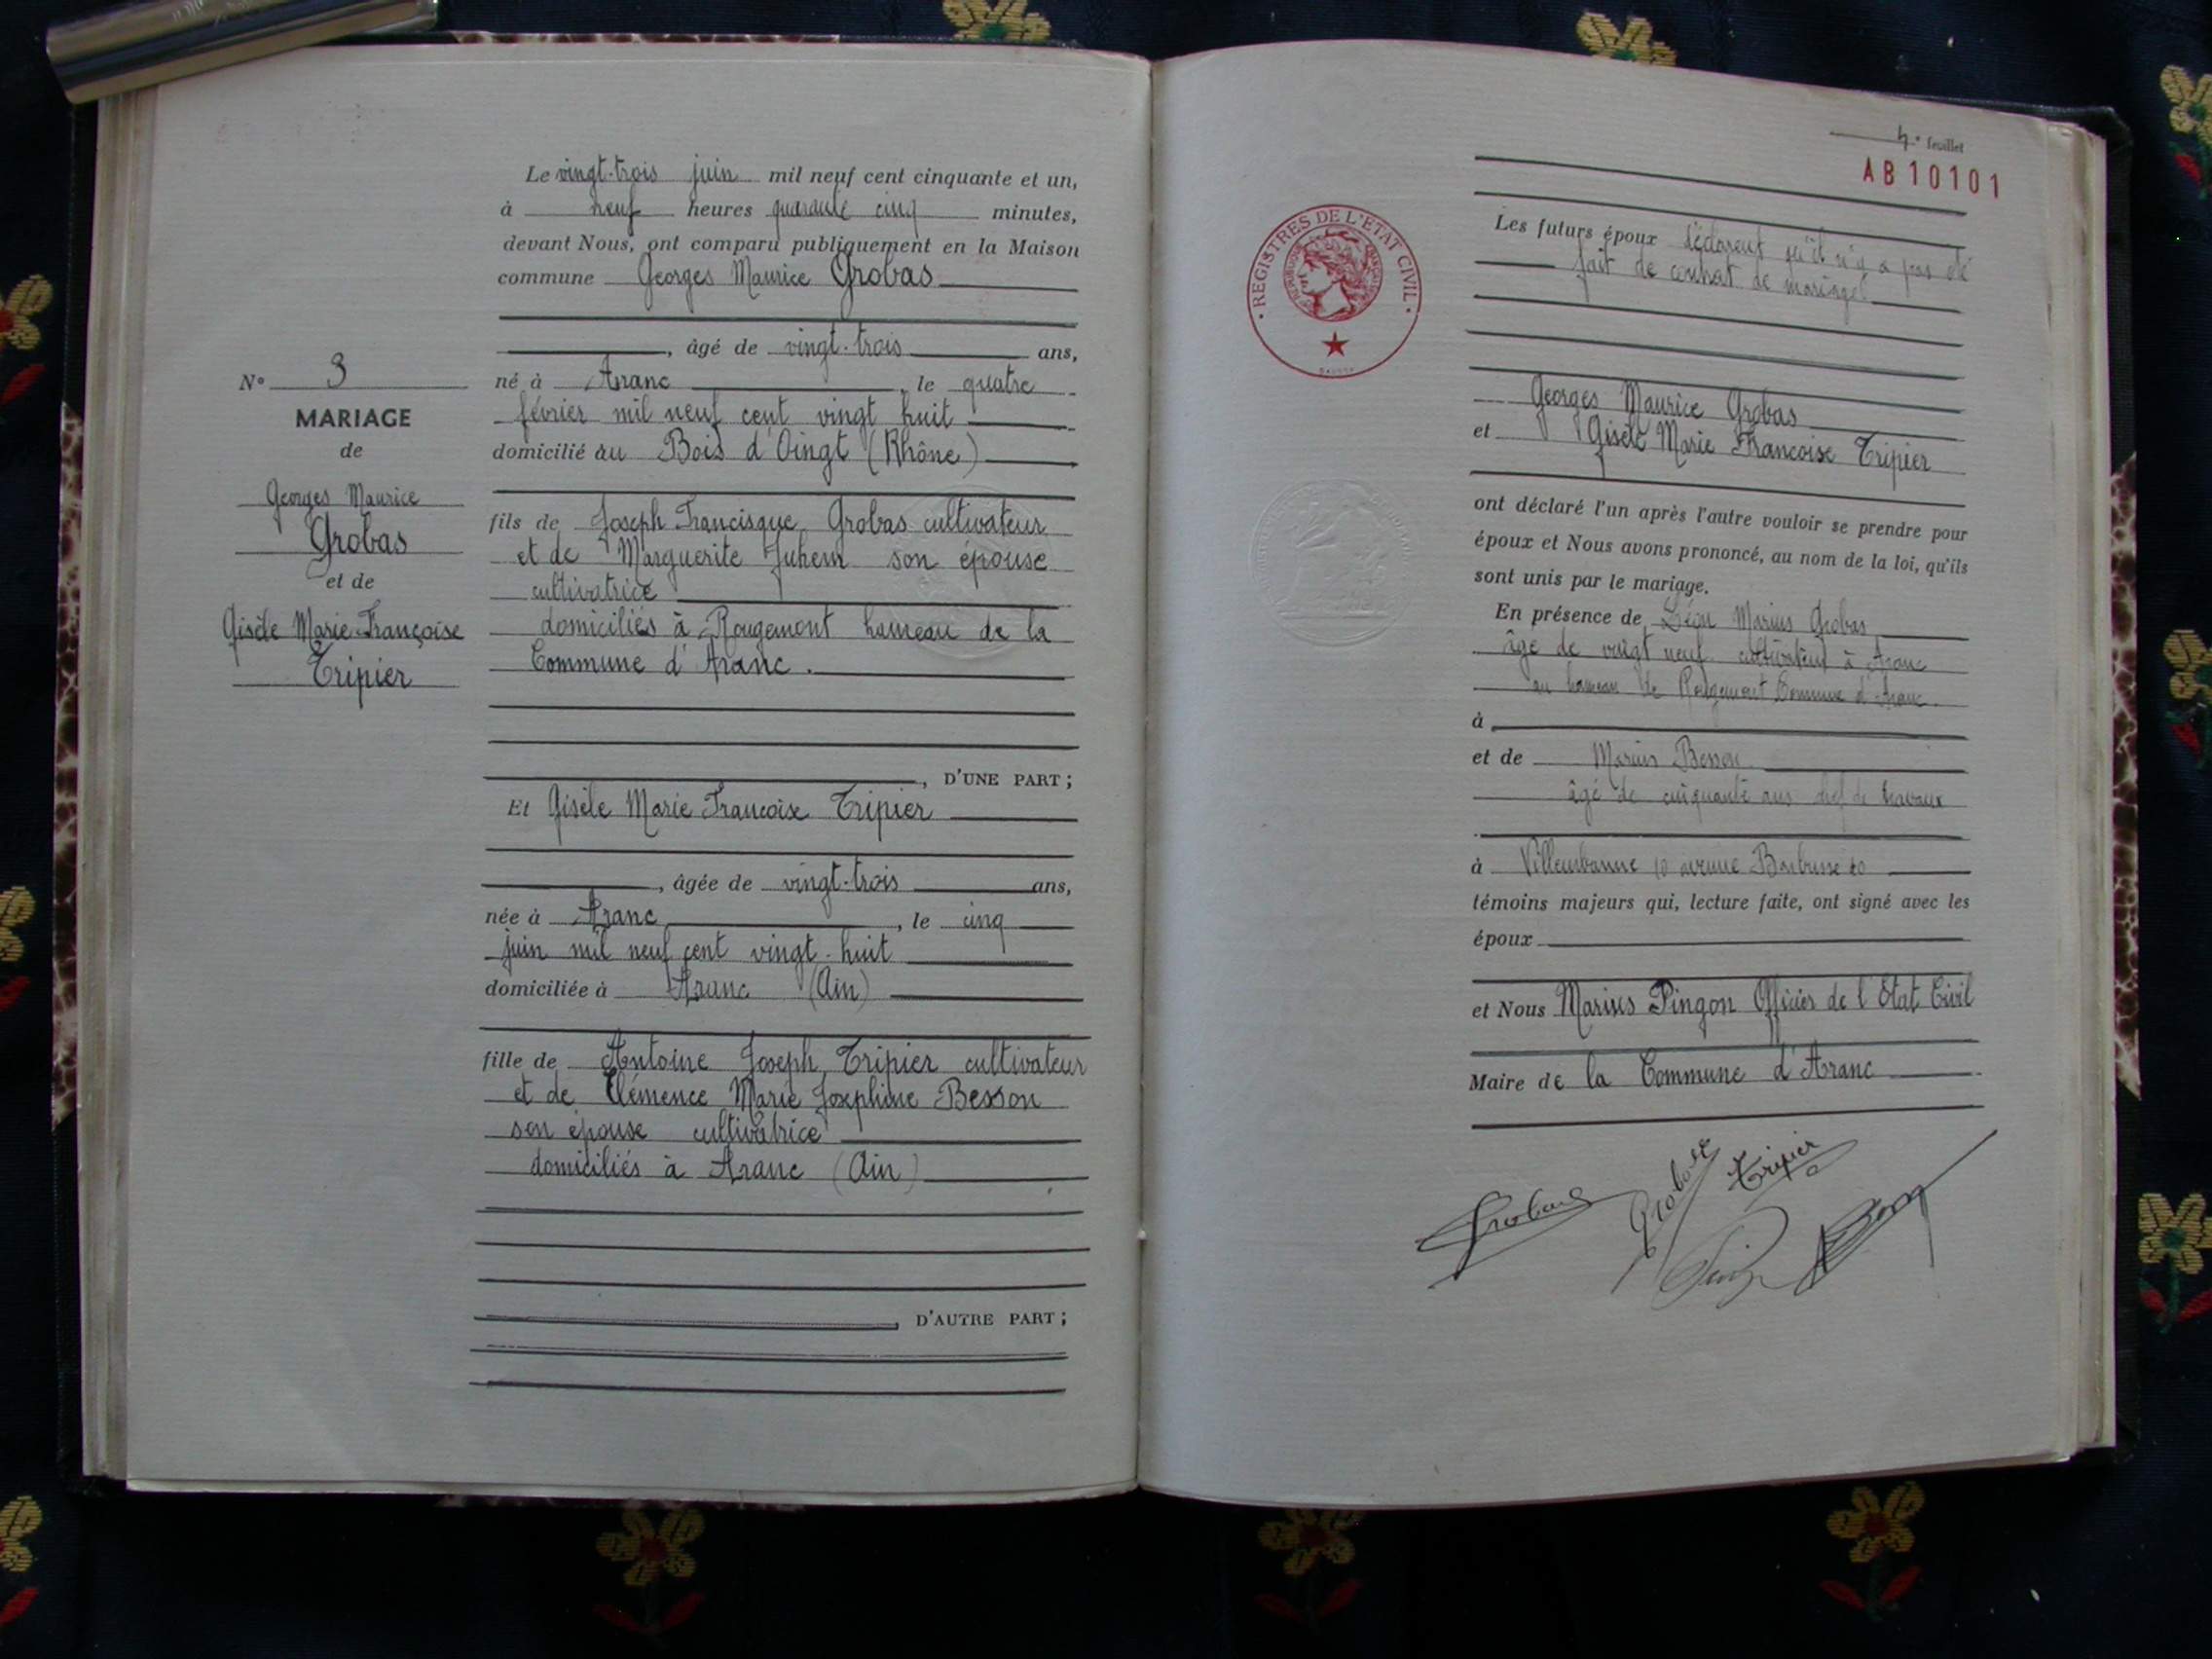 Le vingt-trois juin mil neuf cent cinquante et un,
à neuf heures quarante cinq minutes,
devant Nous, ont comparu publiquement en la Maison
commune Georges Maurice Grobas
, âgé de vingt-trois ans,
né à Aranc, le quatre
février mil neuf cent vingt huit
domicilié au Bois d'Oingt (Rhône)
fils de Joseph Francisque Grobas cultivateur
et de Marguerite Juhem son épouse
cultivatrice
domiciliés à Rougemont hameau de la
Commune d'Aranc.
, D'UNE PART ;
Et Gisèle Marie Francoise Tripier
, âgée de vingt-trois ans,
née à Aranc, le cinq
juin mil neuf cent vingt-huit
domiciliée à Aranc (Ain)
fille de Antoine Joseph Tripier cultivateur
et de Clémence Marie Joséphine Besson
son épouse cultivatrice
domiciliés à Aranc (Ain)
, D'AUTRE PART ;
N° 3
MARIAGE
de
Georges Maurice
Grobas
et de
Gisèle Marie-Françoise
Tripier
4e feuillet
AB10101
REGISTRES DE L'ETAT CIVIL
Les futurs époux déclarent qu'il n'y a pas été
fait de contrat de mariage.
Georges Maurice Grobas
et Gisèle Marie Francoise Tripier
ont déclaré l'un après l'autre vouloir se prendre pour
époux et Nous avons prononcé, au nom de la loi, qu'ils
sont unis par le mariage.
En présence de Léon Marius Grobas
âgé de vingt neuf cultivateur à Aranc
au hameau de Rougemont Commune d'Aranc.
à
et de Marius Besson
âgé de cinquante ans chef de travaux
à Villeurbanne 10 avenue Barbusse 10
témoins majeurs qui, lecture faite, ont signé avec les
époux
et Nous Marius Pingon Officier de l'Etat Civil
Maire de la Commune d'Aranc
Grobas
Grobas
Tripier